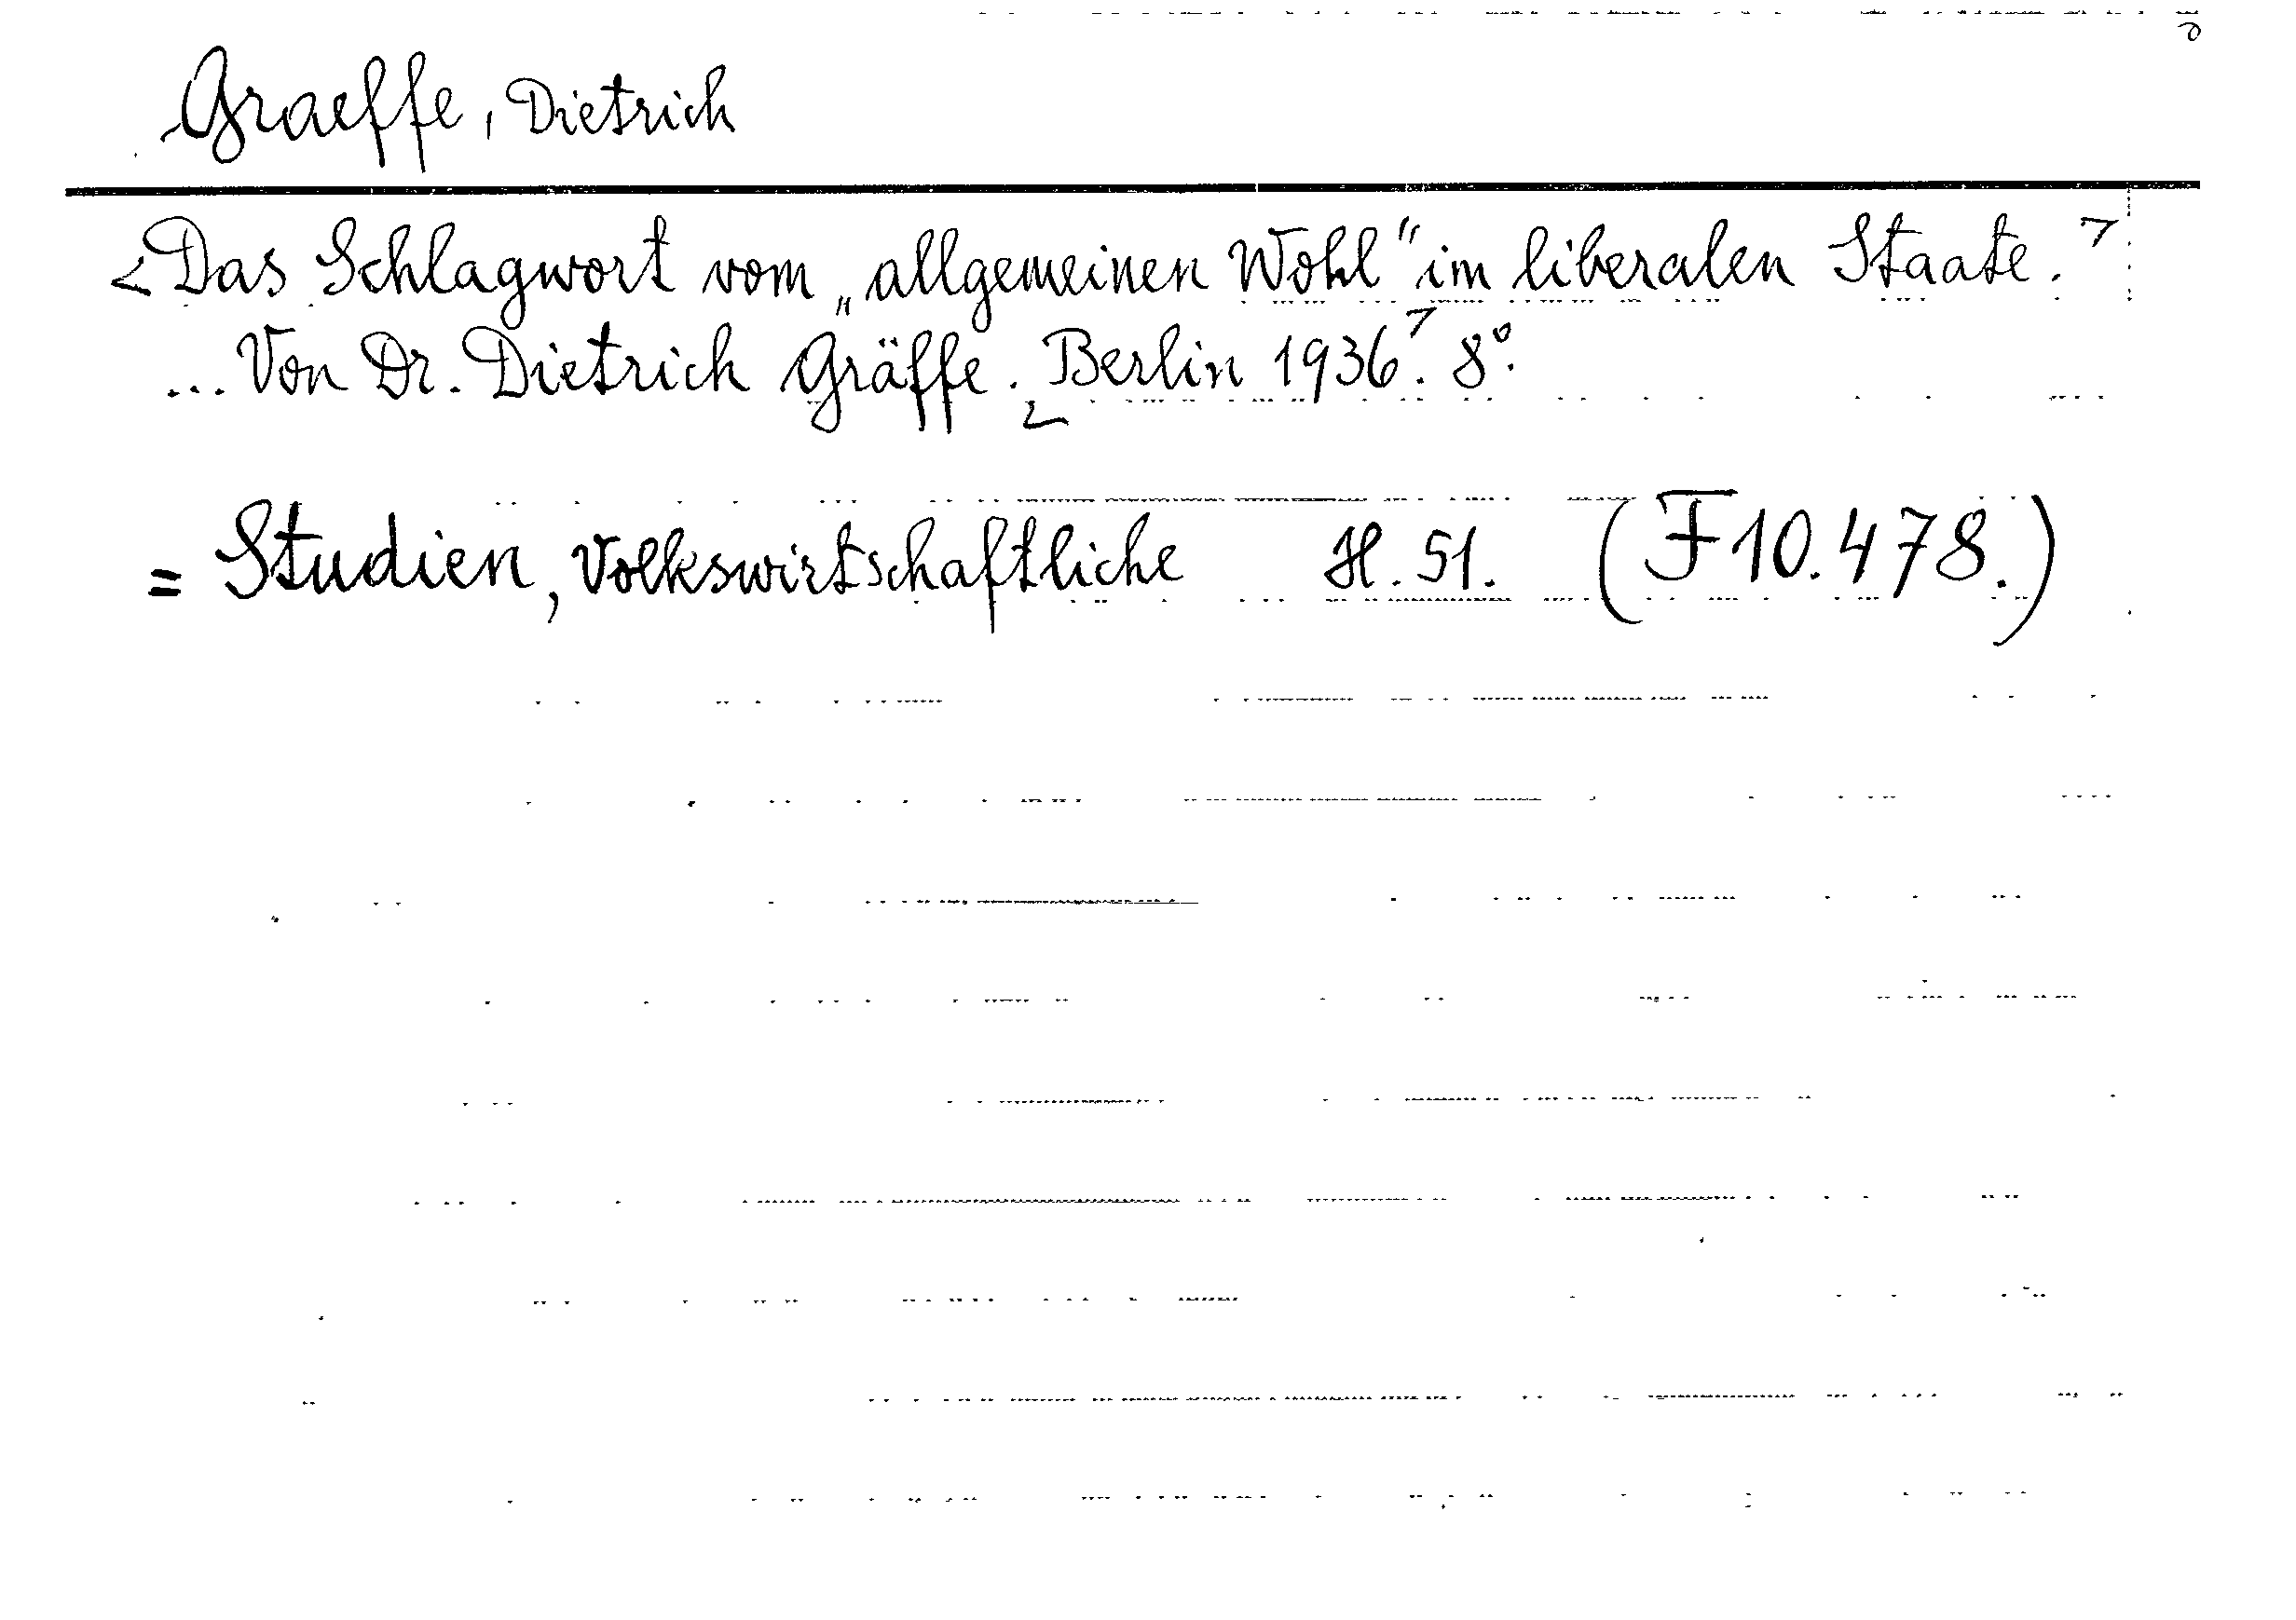 Graeffe, Dietrich
<Das Schlagwort vom „allgemeinen Wohl" im liberalen Staate.>
... Von Dr. Dietrich Gräffe. <Berlin 1936>. 8°.
= Studien, Volkswirtschaftliche H. 51. (F 10.478.)